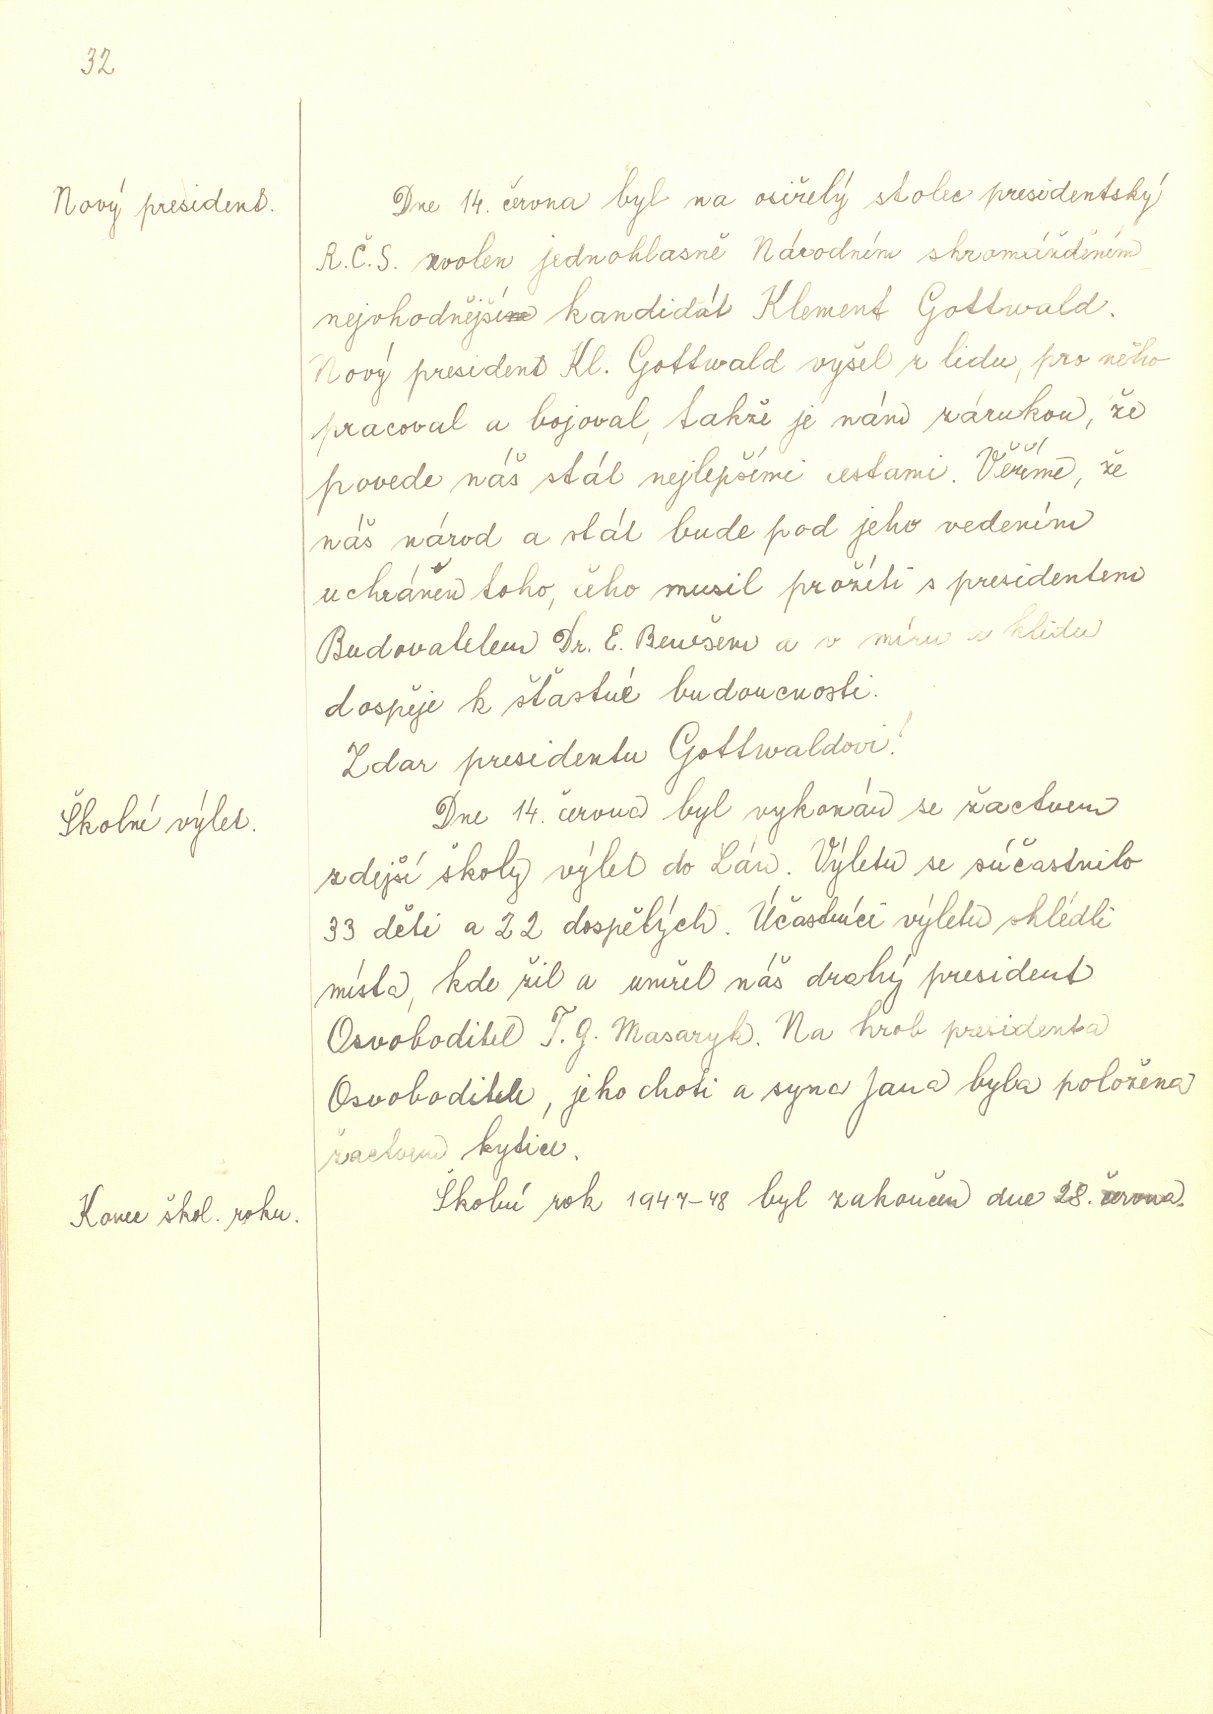 32
Nový president.
Dne 14. června byl na osiřelý stolec presidentský
R.Č.S. zvolen jednohlasně Národním shromážděním
nejvhodnější kandidát Klement Gottwald.
Nový president Kl. Gottwald vyšel z lidu, pro něho
pracoval a bojoval, takže je nám zárukou, že
povede náš stát nejlepšími cestami. Věříme, že
náš národ a stát bude pod jeho vedením
uchráněn toho, čeho musil prožíti s presidentem
Budovatelem Dr. E. Benešem a v míru a klidu
dospěje k šťastné budoucnosti.
Zdar presidentu Gottwaldovi!
Školní výlet.
Dne 14. června byl vykonán se žactvem
zdejší školy výlet do Lán. Výletu se súčastnilo
33 dětí a 22 dospělých. Účastníci výletu shlédli
místa, kde žil a umřel náš drahý president
Osvoboditel T. G. Masaryk. Na hrob presidenta
Osvoboditele, jeho choti a syna Jana byla položena
žactvem kytice.
Konec škol. roku.
Školní rok 1947-48 byl zakončen dne 28. června.